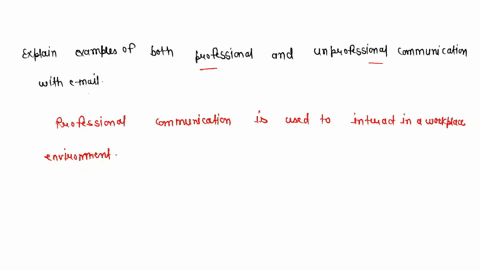 Explain examples of both professional and unprofessional communication
with e-mail.
Professional communication is used to interact in a workplace
environment.